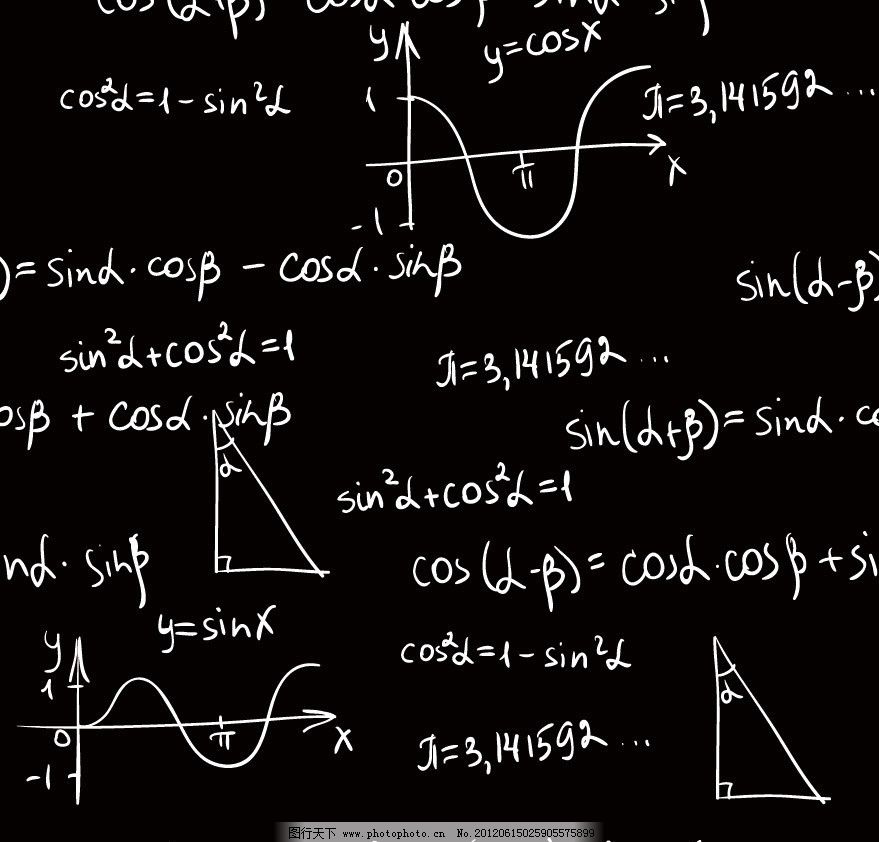 y
y=cosx
cos²α=1-sin²α
1
π=3,141592...
0
π
x
-1
)=sinα·cosβ - cosα·sinβ
sin(α-β)
sin²α+cos²α=1
π=3,141592...
osβ + cosα·sinβ
sin(α+β)=sinα·co
α
sin²α+cos²α=1
nα·sinβ
cos(α-β)=cosα·cosβ+si
y=sinx
y
cos²α=1-sin²α
1
α
0
π
x
π=3,141592...
-1
图行天下 www.photophoto.cn No.20120615025905575899